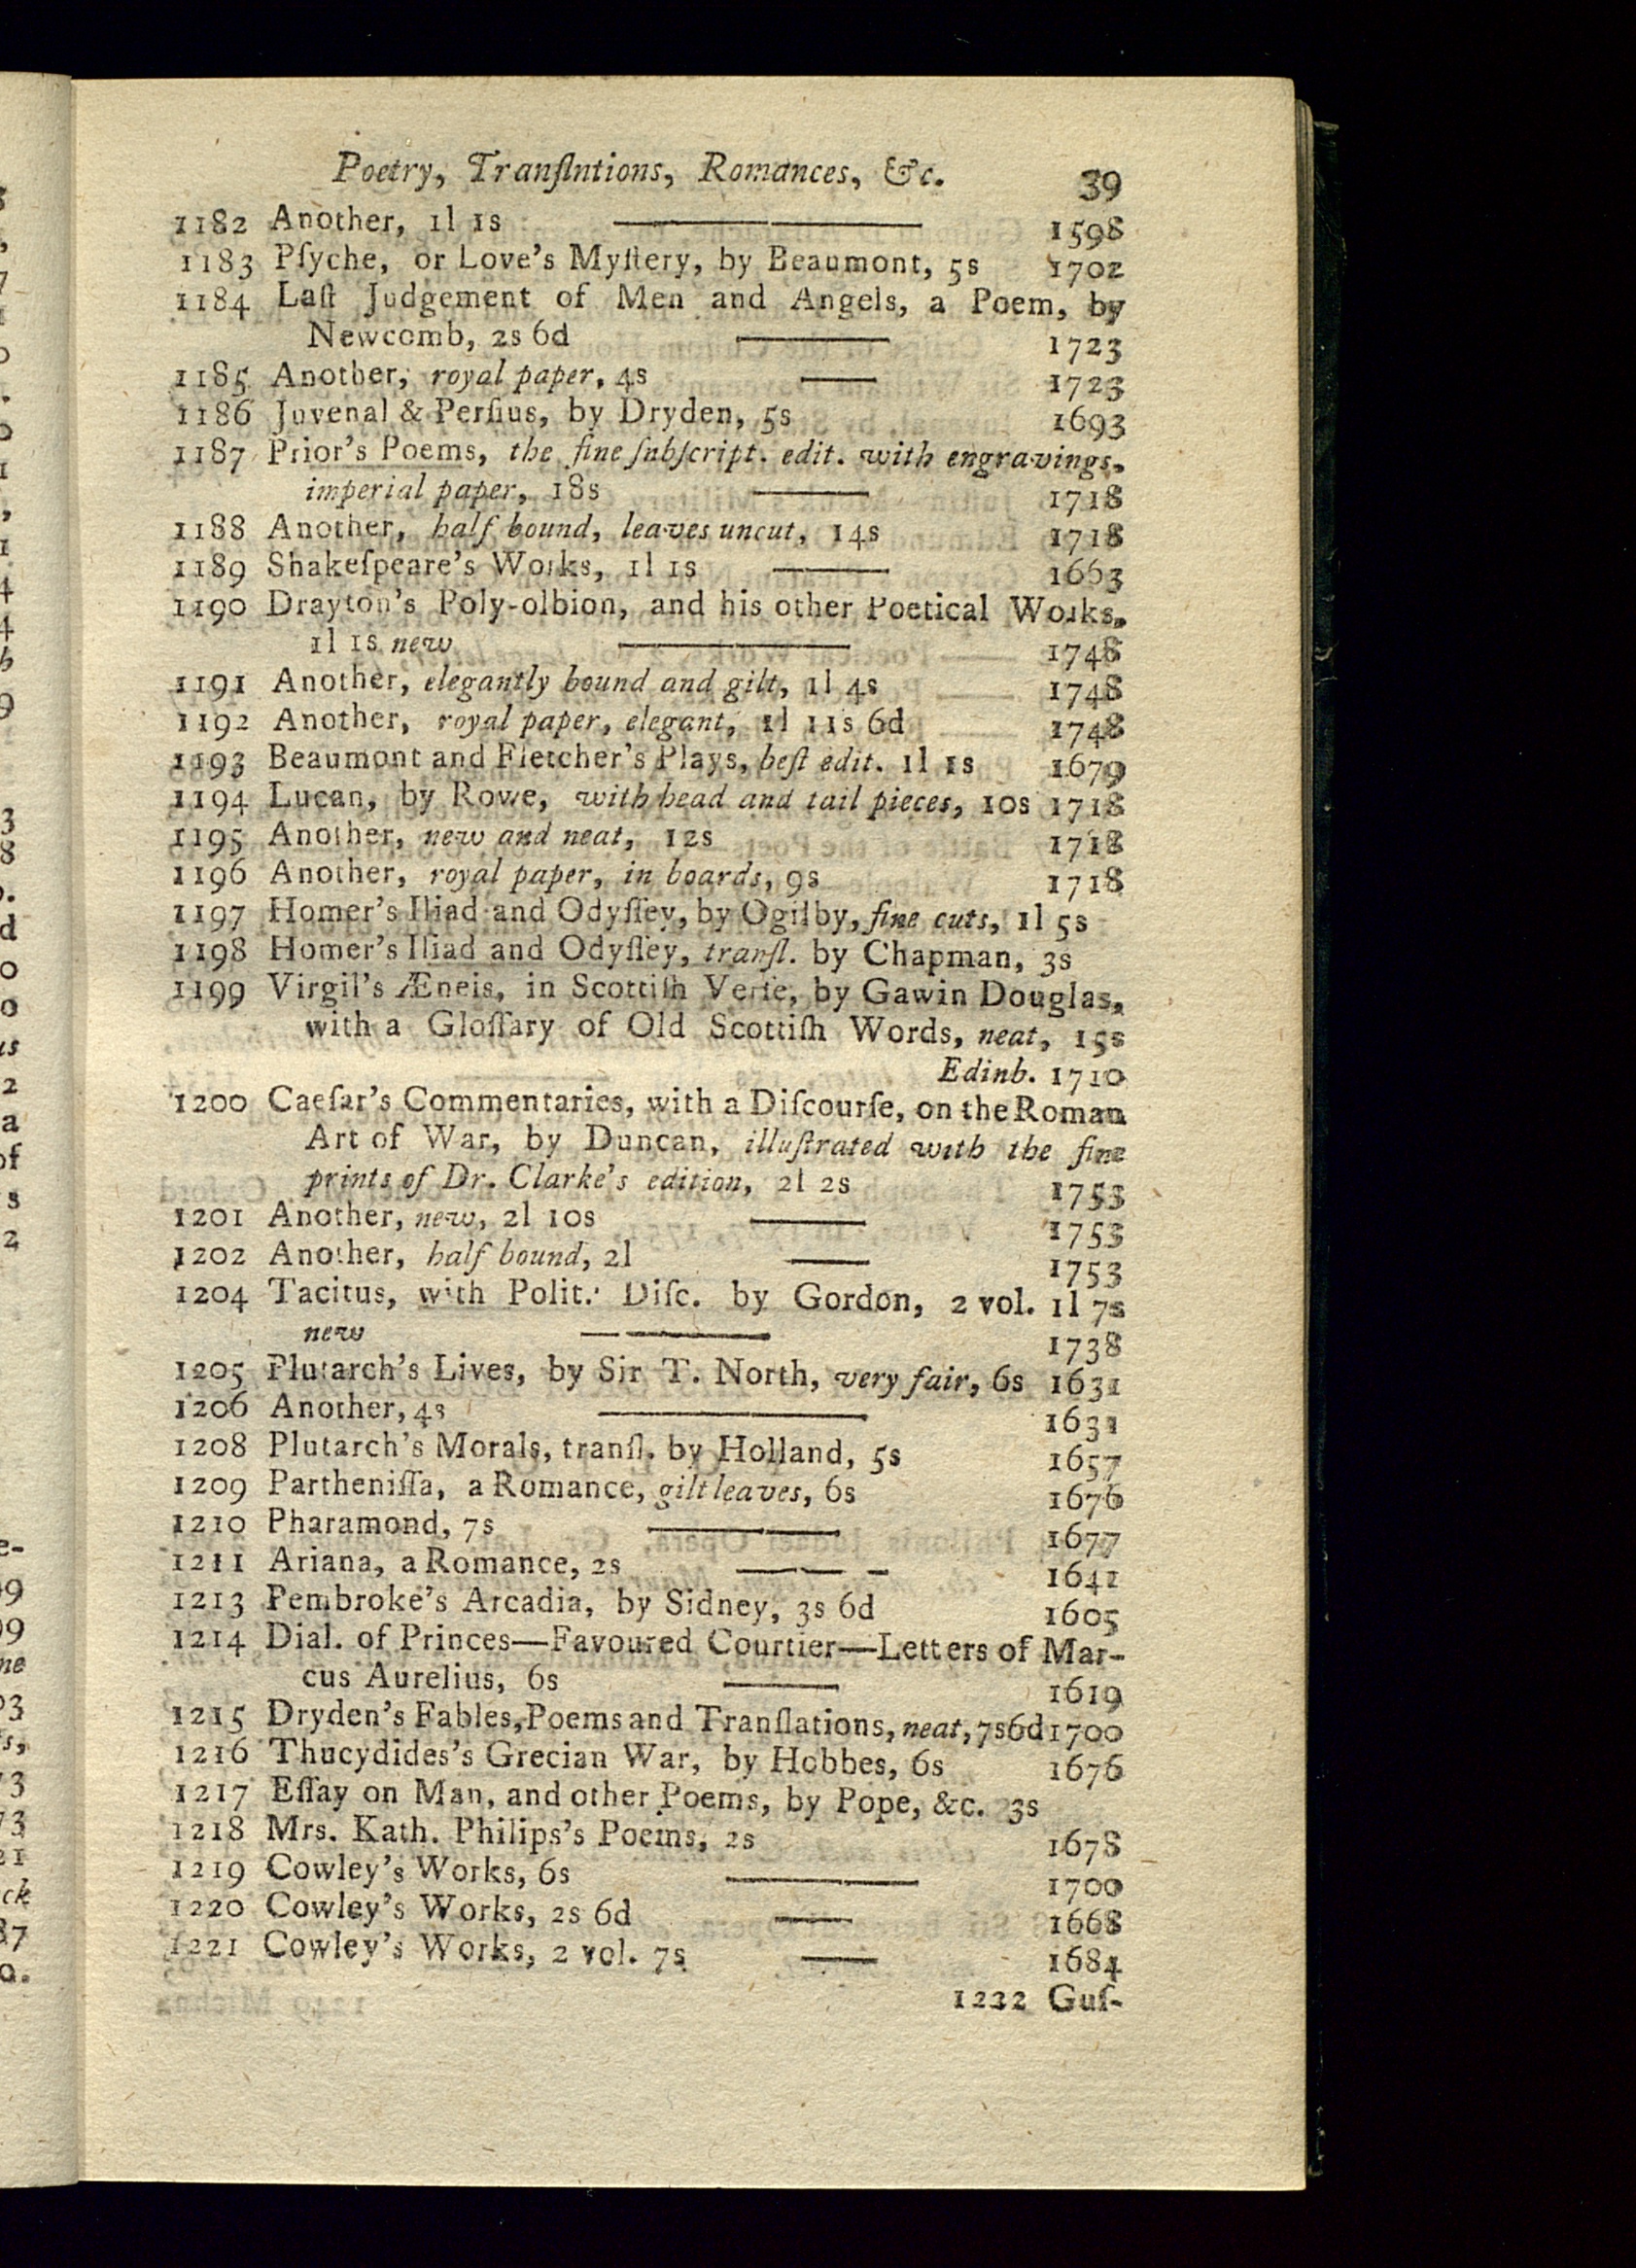 Poetry, Tranſlntions, Romances, &c. 39
1182 Another, 1l 1s —— 1598
1183 Pſyche, or Love's Myſtery, by Beaumont, 5s 1702
1184 Laſt Judgement of Men and Angels, a Poem, by
Newcomb, 2s 6d —— 1723
1185 Another, royal paper, 4s —— 1723
1186 Juvenal & Perſius, by Dryden, 5s 1693
1187 Prior's Poems, the fine ſubſcript. edit. with engravings,
imperial paper, 18s —— 1718
1188 Another, half bound, leaves uncut, 14s 1718
1189 Shakeſpeare's Works, 1l 1s —— 1663
1190 Drayton's Poly-olbion, and his other Poetical Works,
1l 1s new —— 1748
1191 Another, elegantly bound and gilt, 1l 4s 1748
1192 Another, royal paper, elegant, 1l 11s 6d 1748
1193 Beaumont and Fletcher's Plays, beſt edit. 1l 1s 1679
1194 Lucan, by Rowe, with head and tail pieces, 10s 1718
1195 Another, new and neat, 12s 1718
1196 Another, royal paper, in boards, 9s 1718
1197 Homer's Iliad and Odyſſey, by Ogilby, fine cuts, 1l 5s
1198 Homer's Iliad and Odyſſey, tranſl. by Chapman, 3s
1199 Virgil's Æneis, in Scottiſh Verſe, by Gawin Douglas,
with a Gloſſary of Old Scottiſh Words, neat, 15s
Edinb. 1710
1200 Caeſar's Commentaries, with a Diſcourſe, on the Roman
Art of War, by Duncan, illuſtrated with the fine
prints of Dr. Clarke's edition, 2l 2s 1753
1201 Another, new, 2l 10s —— 1753
1202 Another, half bound, 2l —— 1753
1204 Tacitus, with Polit. Diſc. by Gordon, 2 vol. 1l 7s
new —— 1738
1205 Plutarch's Lives, by Sir T. North, very fair, 6s 1631
1206 Another, 4s —— 1631
1208 Plutarch's Morals, tranſl. by Holland, 5s 1657
1209 Partheniſſa, a Romance, gilt leaves, 6s 1676
1210 Pharamond, 7s —— 1677
1211 Ariana, a Romance, 2s —— 1641
1213 Pembroke's Arcadia, by Sidney, 3s 6d 1605
1214 Dial. of Princes—Favoured Courtier—Letters of Mar-
cus Aurelius, 6s —— 1619
1215 Dryden's Fables, Poems and Tranſlations, neat, 7s6d 1700
1216 Thucydides's Grecian War, by Hobbes, 6s 1676
1217 Eſſay on Man, and other Poems, by Pope, &c. 3s
1218 Mrs. Kath. Philips's Poems, 2s 1678
1219 Cowley's Works, 6s —— 1700
1220 Cowley's Works, 2s 6d —— 1668
1221 Cowley's Works, 2 vol. 7s —— 1684
1222 Guſ-